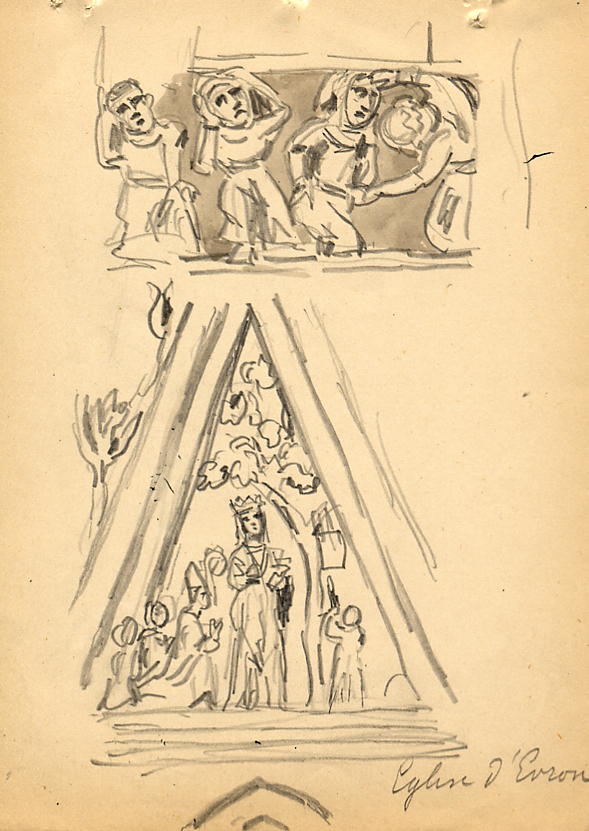 Eglise d'Evron